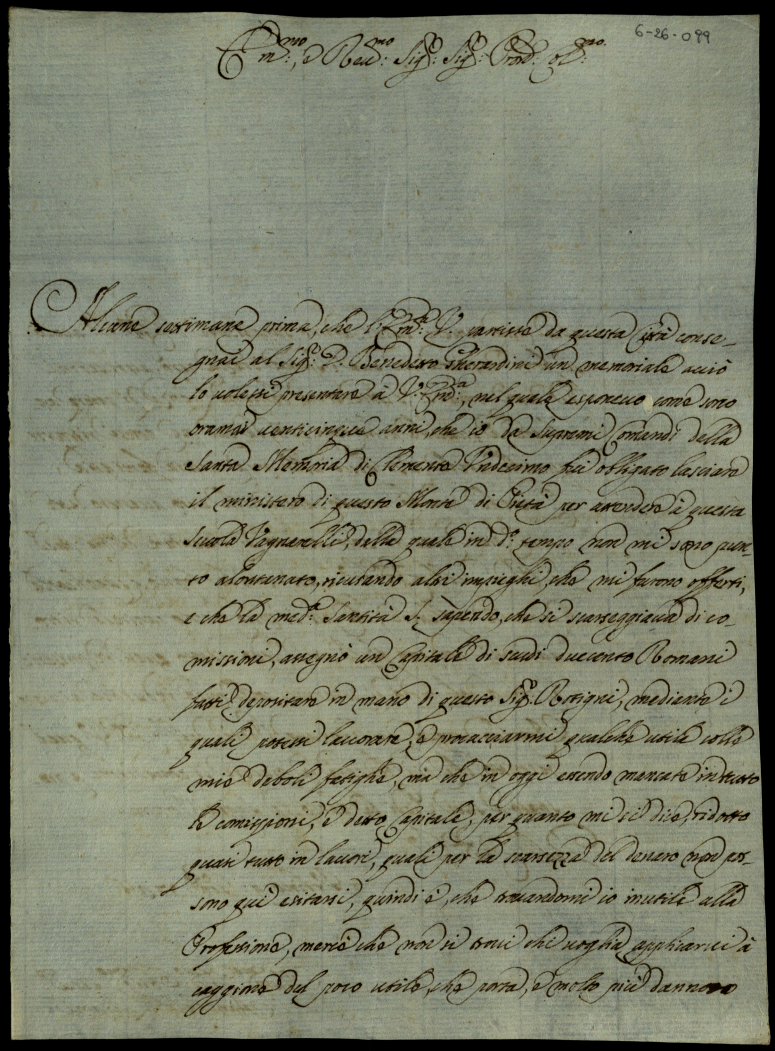 6-26-099
Em:mo, e Reu:mo Sig:re Sig:re Prod: Col:mo
Alcune settimane prima, che l'Em:a V. partisse da questa Città conse-
gnai al Sig:r D. Benedetto Gherardini un memoriale acciò
lo volesse presentare à V:a Em:a, nel quale esponevo come sono
oramai venticinque anni, che io da Supremi Comandi della
Santa Memoria di Clemente Undecimo fui obligato lasciare
il ministero di questo Monte di Pietà per attendere à questa
Scuola Vagnarelli, dalla quale in d:o tempo non mi sono pun-
to alontanato, ricusando altri impieghi, che mi furono offerti,
e che la med:a Santità S: sapendo, che si scarseggiava di co-
missioni, assegnò un Capitale di scudi duecento Romani
fatti depositare in mano di questo Sig:r Rotigni, mediante i
quali potessi lavorare, e procacciarmi qualche utile colle
mie deboli fatighe, ma che in oggi essendo mancate in tutto
le comissioni, e detto Capitale, per quanto mi si dice, ridotto
quasi tutto in lavori, quali per la scarsezza del denaro non pos-
sono quì esitarsi, quindi è, che trovandomi io inutile alla
Professione, mercè che non si trovi chi voglia applicarvi à
caggione del poco utile, che porta, e molto più dannoso